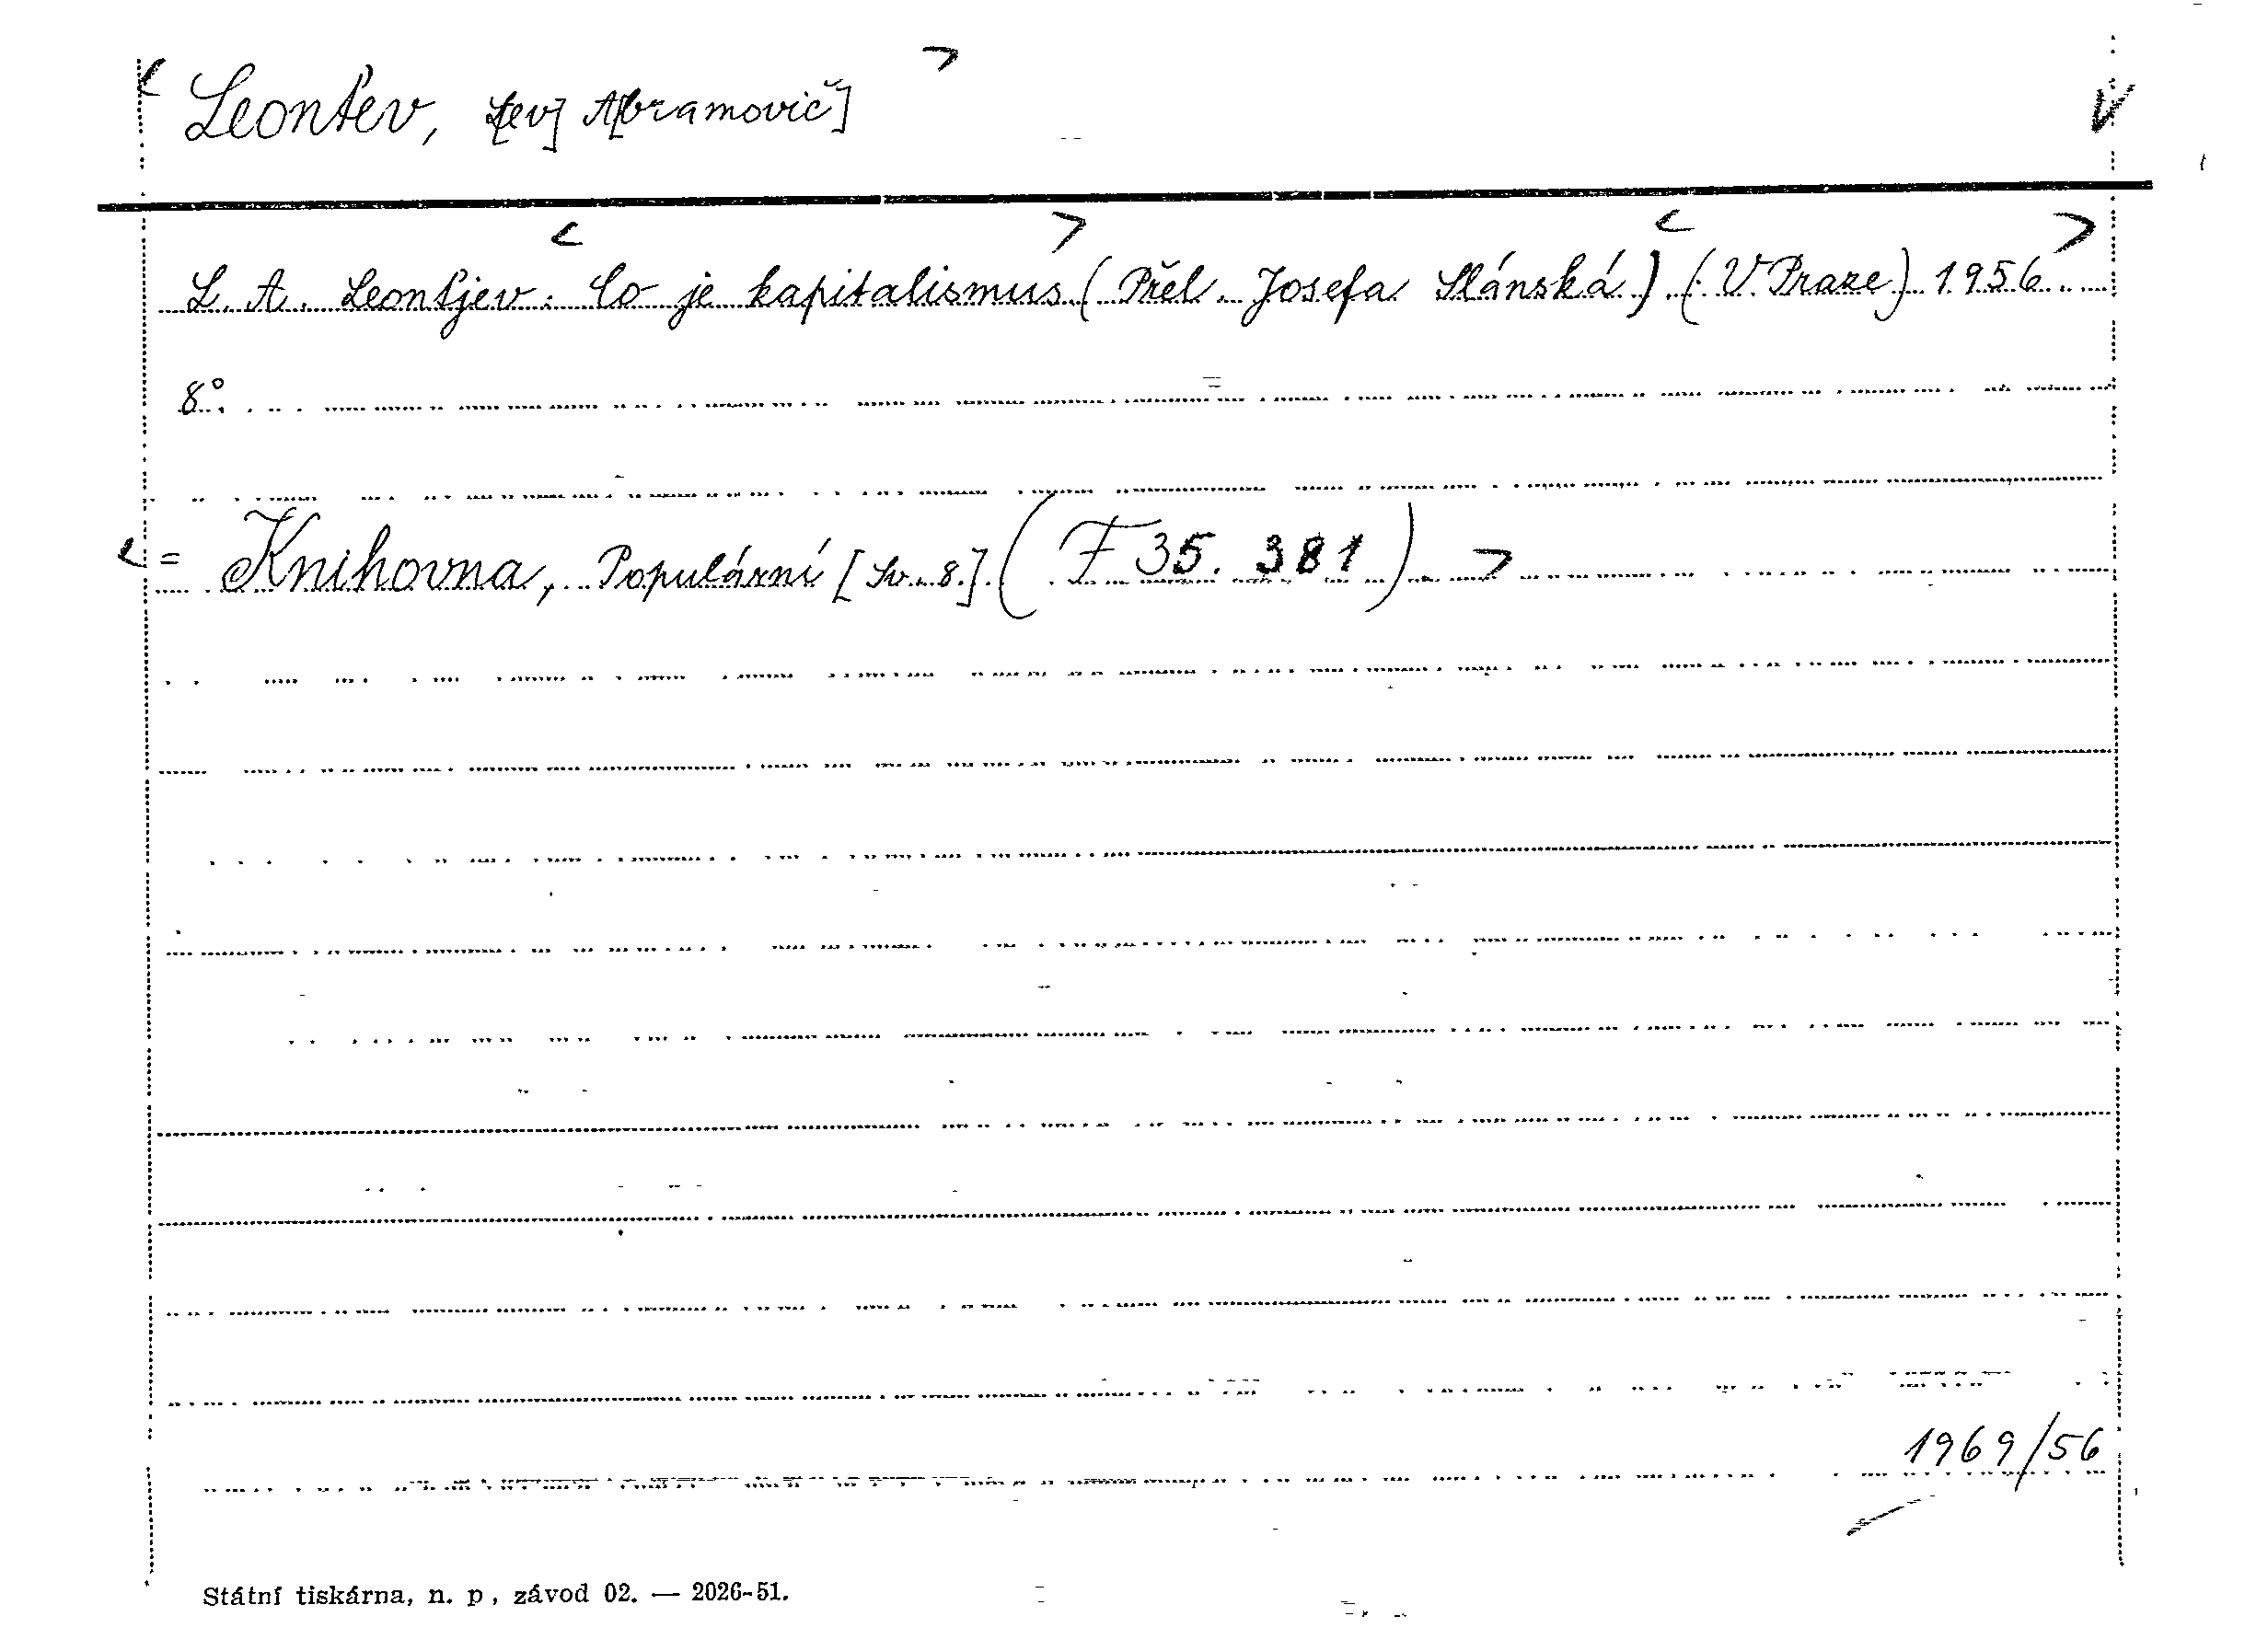 < Leonťev, L[ev] A[bramovič] > V
L. A. Leonťjev: < Co je kapitalismus > (Přel. Josefa Slánská) < (V Praze) 1956. >
8°.
< = Knihovna, Populární [Sv. 8.] (F 35.381). >
1969/56
Státní tiskárna, n. p., závod 02. — 2026-51.